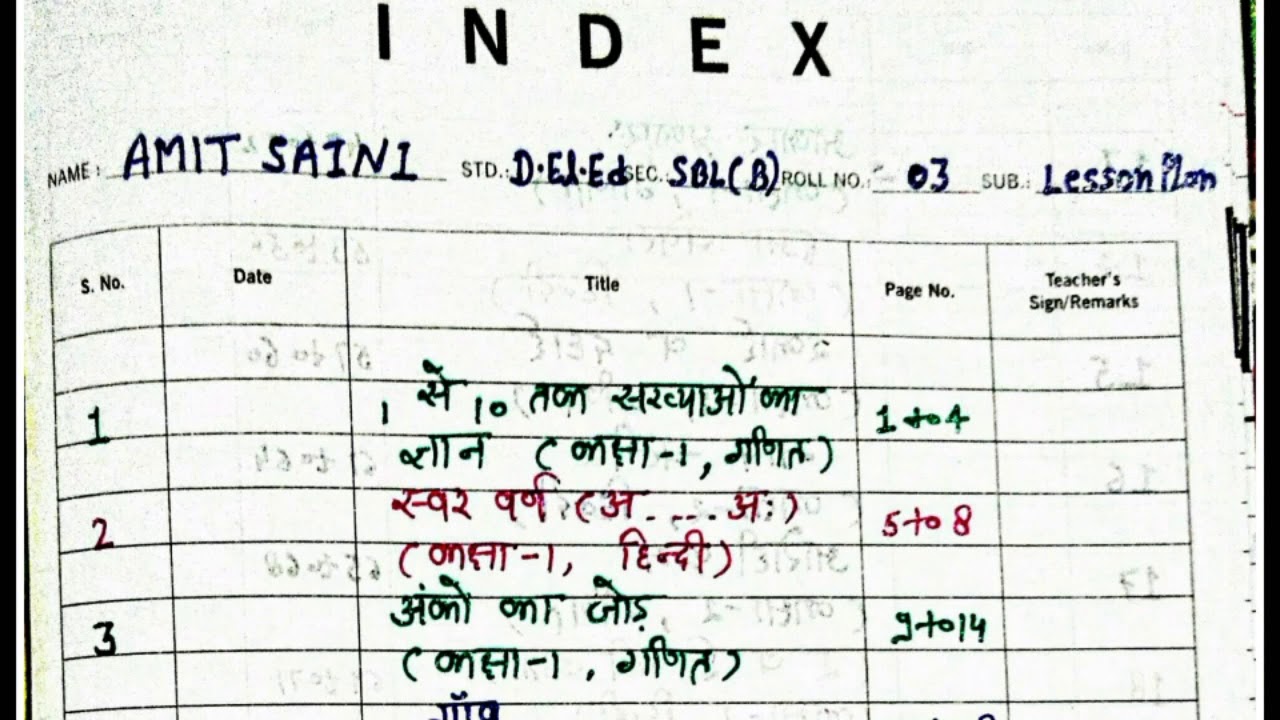 INDEX
NAME: AMIT SAINI STD.: D.El.Ed SEC.: SBL(B) ROLL NO.: 03 SUB.: Lesson Plan
S. No. Date Title Page No. Teacher's Sign/Remarks
1 1 से 10 तक सख्याओं का 1 to 4
ज्ञान (कक्षा-1, गणित)
2 स्वर वर्ण (अ....अः) 5 to 8
(कक्षा-1, हिन्दी)
3 अंको का जोड़ 9 to 14
(कक्षा-1, गणित)